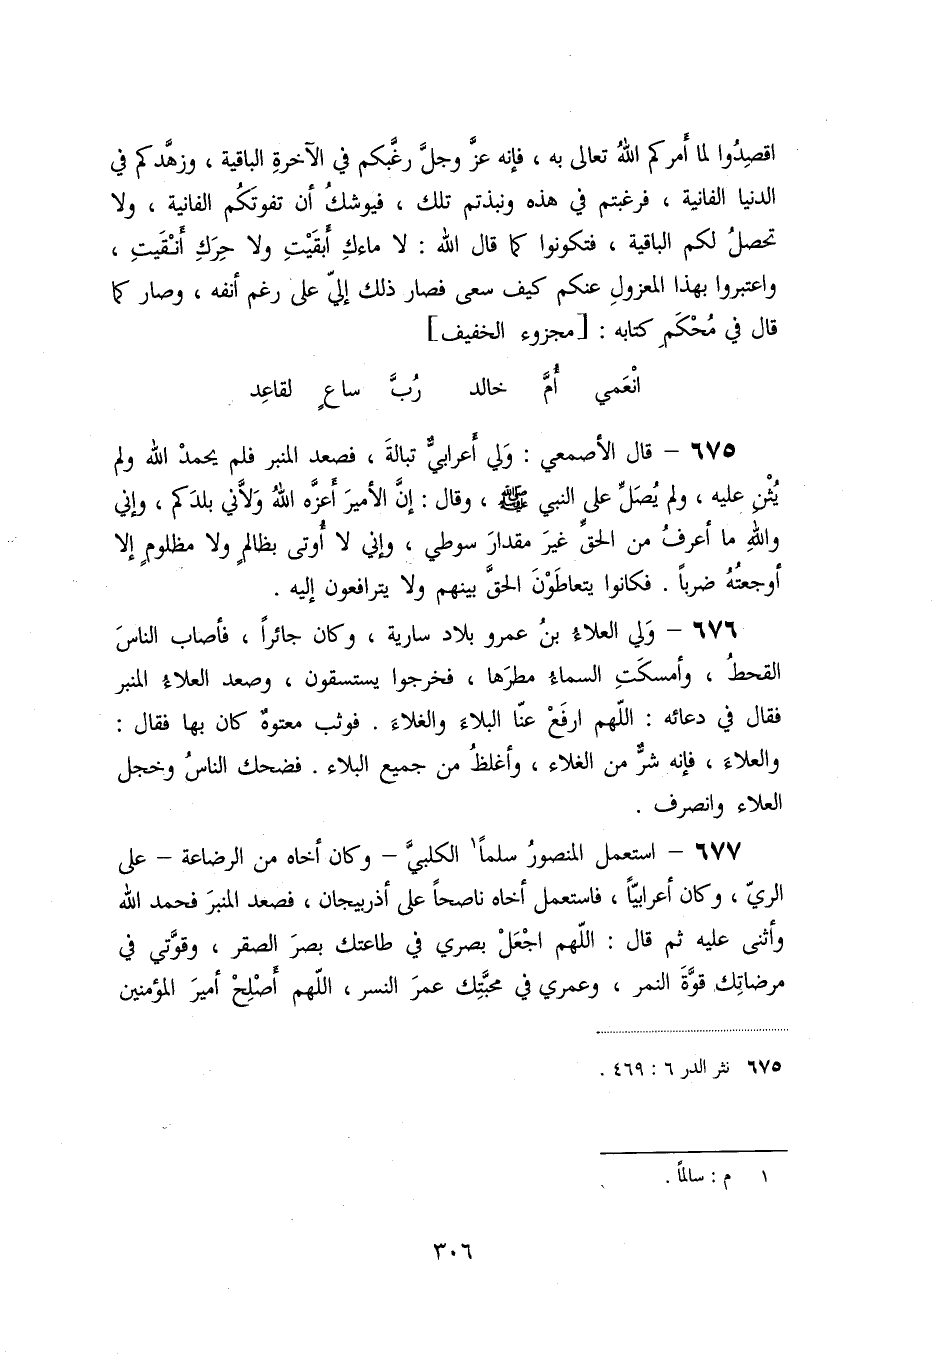 اقصِدُوا لما أَمركم اللهُ تعالى به ، فإنه عزَّ وجلَّ رغَّبكم في الآخرةِ الباقية ، وزهَّدكم في
الدنيا الفانية ، فرغبتم في هذه ونبذتم تلك ، فيوشكُ أن تفوتَكُم الفانية ، ولا
تحصلُ لكم الباقية ، فتكونوا كما قال الله : لا ماءكِ أَبقَيْتِ ولا حِرَكِ أَنْقَيتِ ،
واعتبروا بهذا المعزولِ عنكم كيف سعى فصار ذلك إليّ على رغم أنفه ، وصار كما
قال في مُحْكَمِ كتابه : [مجزوء الخفيف]
انْعَمي أُمَّ خالد رُبَّ ساعٍ لقاعِد
٦٧٥ – قال الأصمعي : وَلي أَعرابيٌّ تبالةَ ، فصعد المنبر فلم يحمدْ الله ولم
يُثْنِ عليه ، ولم يُصَلِّ على النبي ﷺ ، وقال : إنَّ الأميرَ أَعزَّه اللهُ وَلاَّني بلدَكم ، وإني
واللهِ ما أعرفُ من الحقِّ غيرَ مقدارَ سوطي ، وإني لا أُوتى بظالمٍ ولا مظلومٍ إلا
أوجعتُهُ ضرباً . فكانوا يتعاطَوْنَ الحقَّ بينهم ولا يترافعون إليه .
٦٧٦ – وَلي العلاءُ بنُ عمرو بلاد سارية ، وكان جائراً ، فأصاب الناسَ
القحطُ ، وأمسكَتِ السماءُ مطرَها ، فخرجوا يستسقون ، وصعد العلاءُ المنبر
فقال في دعائه : اللّهم ارفَعْ عنّا البلاءَ والغلاءَ . فوثب معتوهٌ كان بها فقال :
والعلاءَ ، فإنه شرٌّ من الغلاء ، وأغلظُ من جميع البلاء . فضحك الناسُ وخجل
العلاء وانصرف .
٦٧٧ – استعمل المنصورُ سلماً١ الكلبيَّ – وكان أخاه من الرضاعة – على
الريّ ، وكان أعرابيّاً ، فاستعمل أخاه ناصحاً على أذربيجان ، فصعد المنبرَ فحمد الله
وأثنى عليه ثم قال : اللّهم اجْعَلْ بصري في طاعتك بصرَ الصقر ، وقوَّتي في
مرضاتِك قوَّةَ النمر ، وعمري في محبَّتِك عمرَ النسر ، اللّهم أَصْلِحْ أميرَ المؤمنين
٦٧٥ نثر الدر ٦ : ٤٦٩ .
١ م : سالماً .
٣٠٦